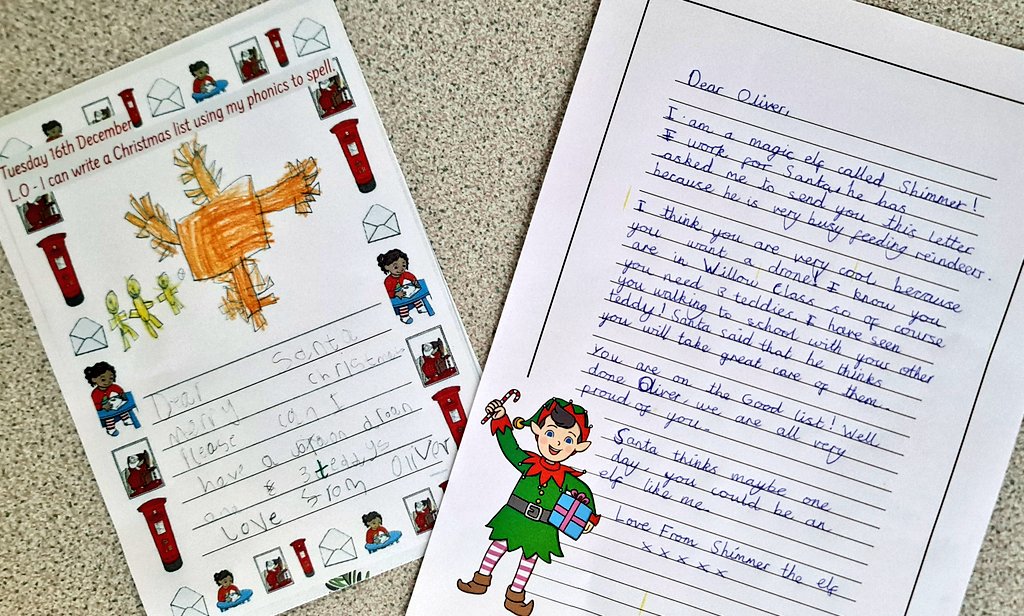 Tuesday 16th December
L.O - I can write a Christmas list using my phonics to spell.
Dear Santa
merry christmas
Please can I
have a drean
3 teddys
Love from Oliver
Dear Oliver,
I am a magic elf called Shimmer!
I work for Santa, he has
asked me to send you this letter
because he is very busy feeding reindeers.
I think you are very cool because
you want a drone! I know you
are in Willow Class so of course
you need 3 teddies. I have seen
you walking to school with your other
teddy! Santa said that he thinks
you will take great care of them.
You are on the Good list! Well
done Oliver, we are all very
proud of you.
Santa thinks maybe one
day, you could be an
elf like me.
Love From Shimmer the elf
x x x x x